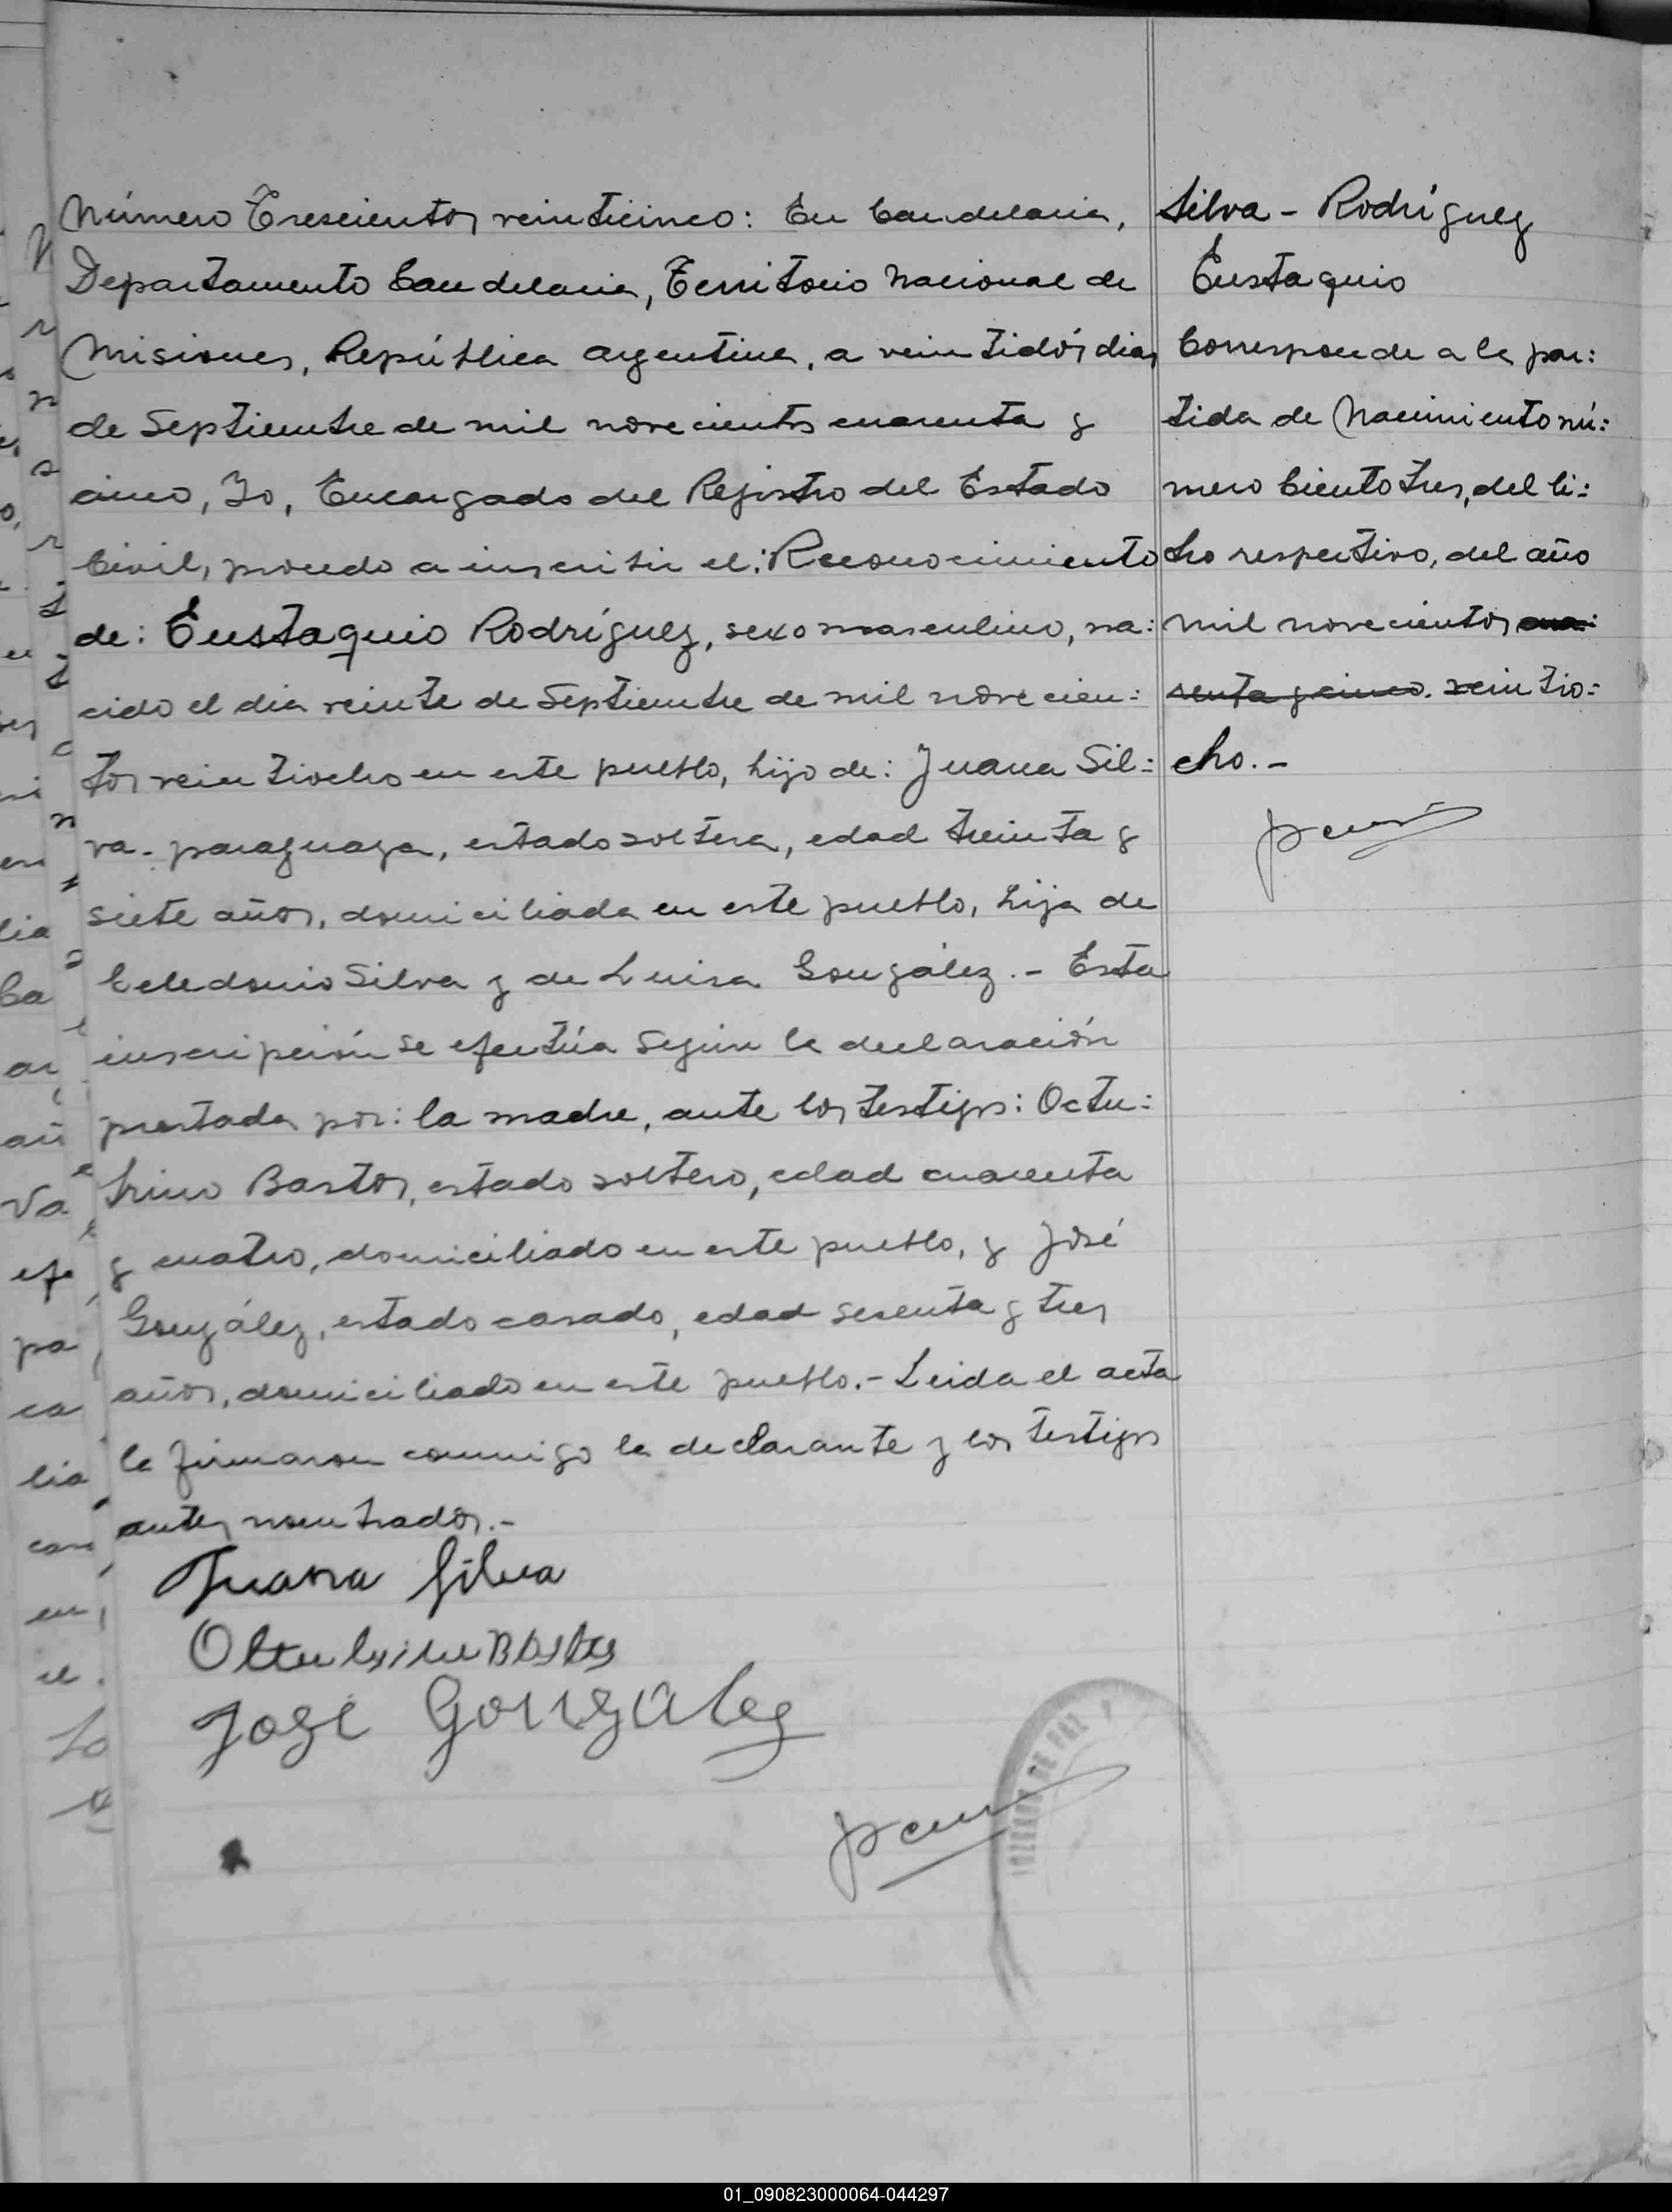 Número Trescientos veinticinco: En Candelaria,
Departamento Candelaria, Territorio Nacional de
Misiones, República Argentina, a veintidós dias
de Septiembre de mil novecientos cuarenta y
cinco, Yo, Encargado del Registro del Estado
Civil, procedo a inscribir el: Reconocimiento
de: Eustaquio Rodríguez, sexo masculino, na:
cido el dia veinte de Septiembre de mil novecien:
tos veintiocho en este pueblo, hijo de: Juana Sil:
va - paraguaya, estado soltera, edad treinta y
siete años, domiciliada en este pueblo, hija de
Celedonio Silva y de Luisa González.- Esta
inscripción se efectúa según la declaración
prestada por: la madre, ante los testigos: Octu:
brino Bastos, estado soltero, edad cuarenta
y cuatro, domiciliado en este pueblo, y José
González, estado casado, edad sesenta y tres
años, domiciliado en este pueblo.- Leida el acta
la firmaron conmigo la declarante y los testigos
antes nombrados.-
Juana Silva
Bastos
José Gonzalez
Silva - Rodríguez
Eustaquio
Corresponde a la par:
tida de Nacimiento nú:
mero Ciento tres, del li:
bro respectivo, del año
mil novecientos cua:
renta y cinco. veintio:
cho.-
JUZGADO DE PAZ
01_090823000064-044297